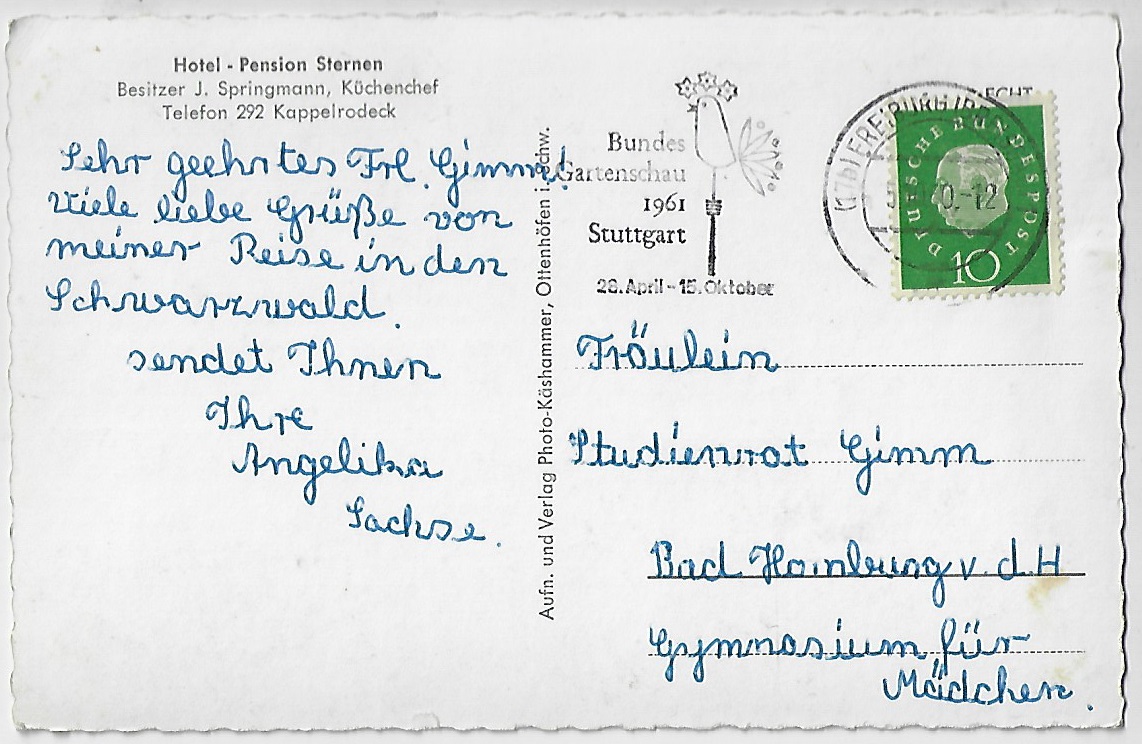 Hotel - Pension Sternen
Besitzer J. Springmann, Küchenchef
Telefon 292 Kappelrodeck
Sehr geehrtes Frl. Gimm!
Viele liebe Grüße von
meiner Reise in den
Schwarzwald.
sendet Ihnen
Ihre
Angelika
Sachse.
Aufn. und Verlag Photo-Käshammer, Ottenhöfen i. Schw.
Bundes
Gartenschau
1961
Stuttgart
28. April - 15. Oktober
(17b) FREIBURG (BR
-12
ECHT
DEUTSCHE BUNDESPOST
10
Fräulein
Studienrat Gimm
Bad Homburg v. d. H
Gymnasium für
Mädchen.